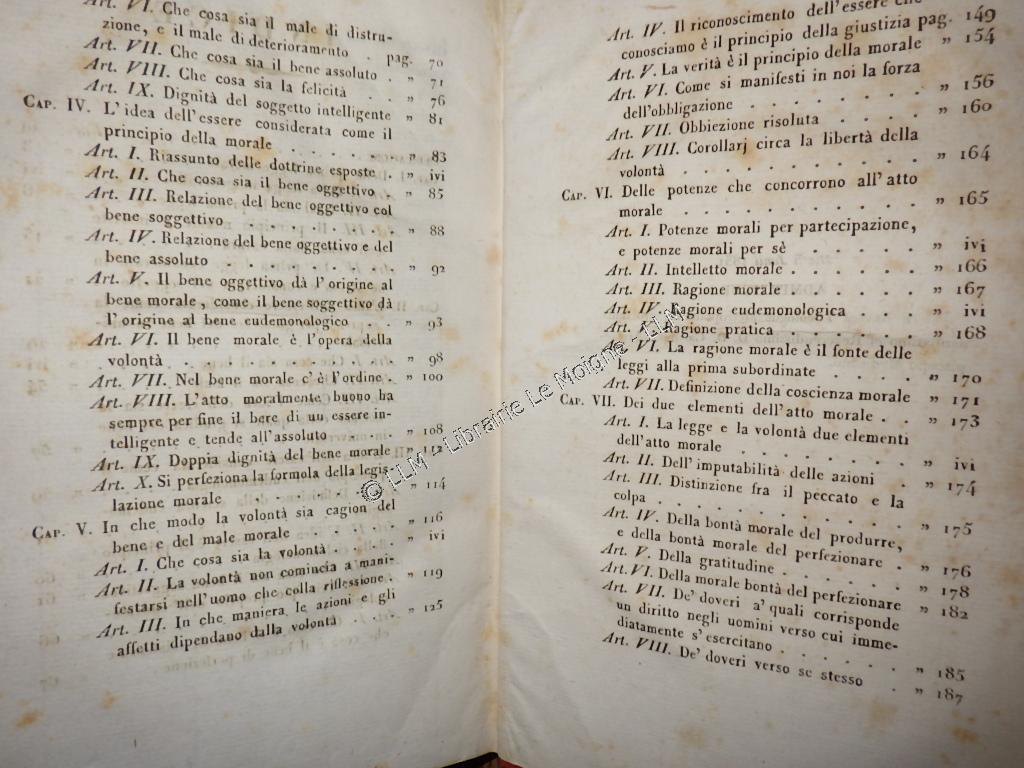 Art. VI. Che cosa sia il male di distru-
zione, e il male di deterioramento . pag. 70
Art. VII. Che cosa sia il bene assoluto . „ 71
Art. VIII. Che cosa sia la felicità . . „ 76
Art. IX. Dignità del soggetto intelligente „ 81
CAP. IV. L'idea dell'essere considerata come il
principio della morale . . . . . . „ 83
Art. I. Riassunto delle dottrine esposte . „ ivi
Art. II. Che cosa sia il bene oggettivo . „ 85
Art. III. Relazione del bene oggettivo col
bene soggettivo . . . . . . . . „ 88
Art. IV. Relazione del bene oggettivo e del
bene assoluto . . . . . . . . „ 92
Art. V. Il bene oggettivo dà l'origine al
bene morale, come il bene soggettivo dà
l'origine al bene eudemonologico . . „ 93
Art. VI. Il bene morale è l'opera della
volontà . . . . . . . . . . „ 98
Art. VII. Nel bene morale c'è l'ordine . „ 100
Art. VIII. L'atto moralmente buono ha
sempre per fine il bene di un essere in-
telligente e tende all'assoluto . . . „ 108
Art. IX. Doppia dignità del bene morale „ 112
Art. X. Si perfeziona la formola della legis-
lazione morale . . . . . . . . „ 114
CAP. V. In che modo la volontà sia cagion del
bene e del male morale . . . . . „ 116
Art. I. Che cosa sia la volontà . . . . „ ivi
Art. II. La volontà non comincia a mani-
festarsi nell'uomo che colla riflessione . „ 119
Art. III. In che maniera le azioni e gli
affetti dipendano dalla volontà . . . „ 125
Art. IV. Il riconoscimento dell'essere che
conosciamo è il principio della giustizia pag. 149
Art. V. La verità è il principio della morale „ 154
Art. VI. Come si manifesti in noi la forza
dell'obbligazione . . . . . . . . „ 156
Art. VII. Obbiezione risoluta . . . . „ 160
Art. VIII. Corollarj circa la libertà della
volontà . . . . . . . . . . „ 164
CAP. VI. Delle potenze che concorrono all'atto
morale . . . . . . . . . . . „ 165
Art. I. Potenze morali per partecipazione,
e potenze morali per sè . . . . . . „ ivi
Art. II. Intelletto morale . . . . . . „ 166
Art. III. Ragione morale . . . . . . „ 167
Art. IV. Ragione eudemonologica . . . „ ivi
Art. V. Ragione pratica . . . . . . „ 168
Art. VI. La ragione morale è il fonte delle
leggi alla prima subordinate . . . . „ 170
Art. VII. Definizione della coscienza morale „ 171
CAP. VII. Dei due elementi dell'atto morale . „ 173
Art. I. La legge e la volontà due elementi
dell'atto morale . . . . . . . . „ ivi
Art. II. Dell'imputabilità delle azioni . „ 174
Art. III. Distinzione fra il peccato e la
colpa . . . . . . . . . . . „ 175
Art. IV. Della bontà morale del produrre,
e della bontà morale del perfezionare . „ 176
Art. V. Della gratitudine . . . . . . „ 178
Art. VI. Della morale bontà del perfezionare „ 182
Art. VII. De' doveri a' quali corrisponde
un diritto negli uomini verso cui imme-
diatamente s'esercitano . . . . . . „ 185
Art. VIII. De' doveri verso se stesso . „ 187
© LLM - Librairie Le Moigne - LLM